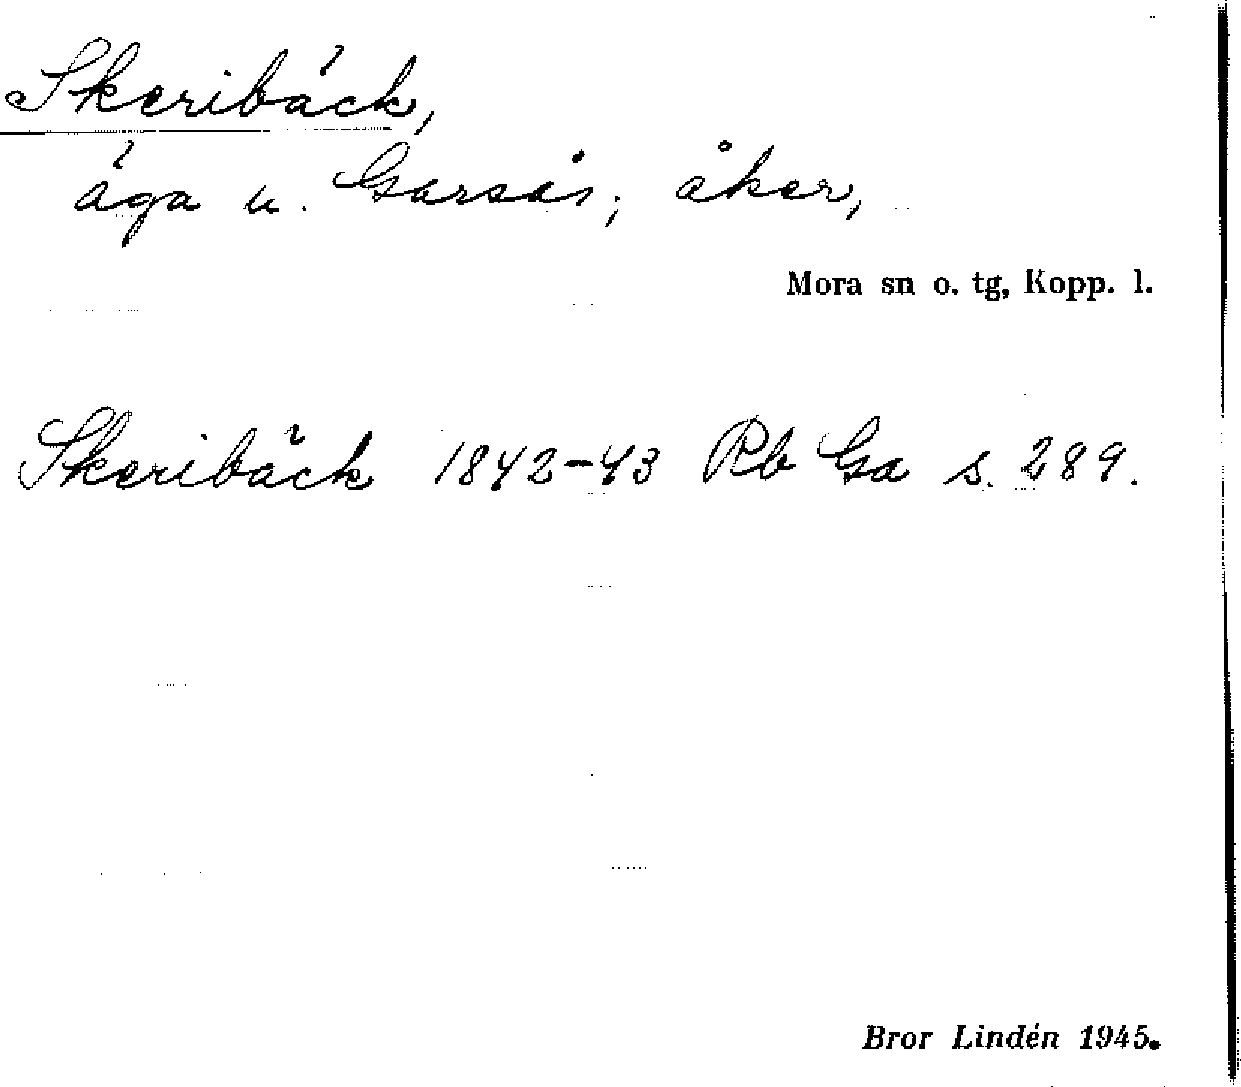 Skeribäck,
äga u. Garsås; åker,
Mora sn o. tg, Kopp. l.
Skeribäck 1842-43 Rb Ga s. 289.
Bror Lindén 1945.